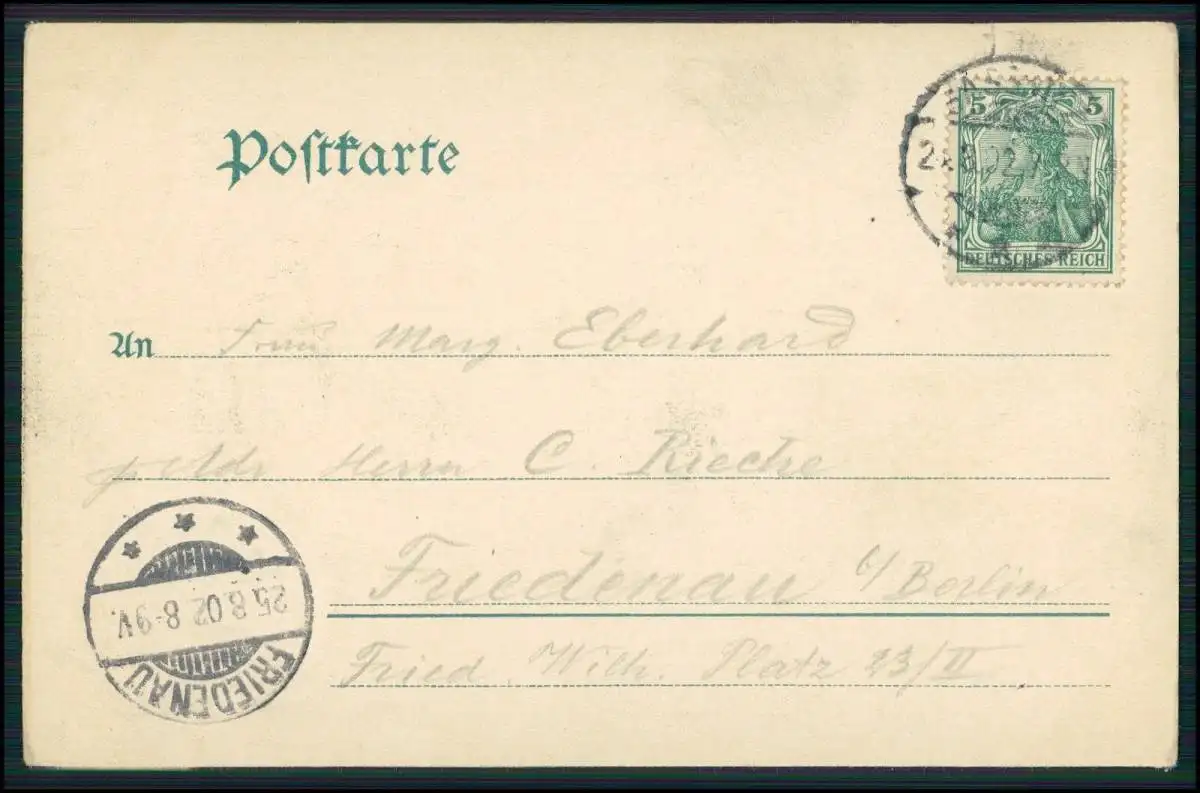 Postkarte
5 5
DEUTSCHES REICH
An Frau Marg. Eberhard
p Adr Herrn C. Rieche
Friedenau b/Berlin
Fried. Wilh. Platz 23/II
25.8.02 8-9V.
FRIEDENAU